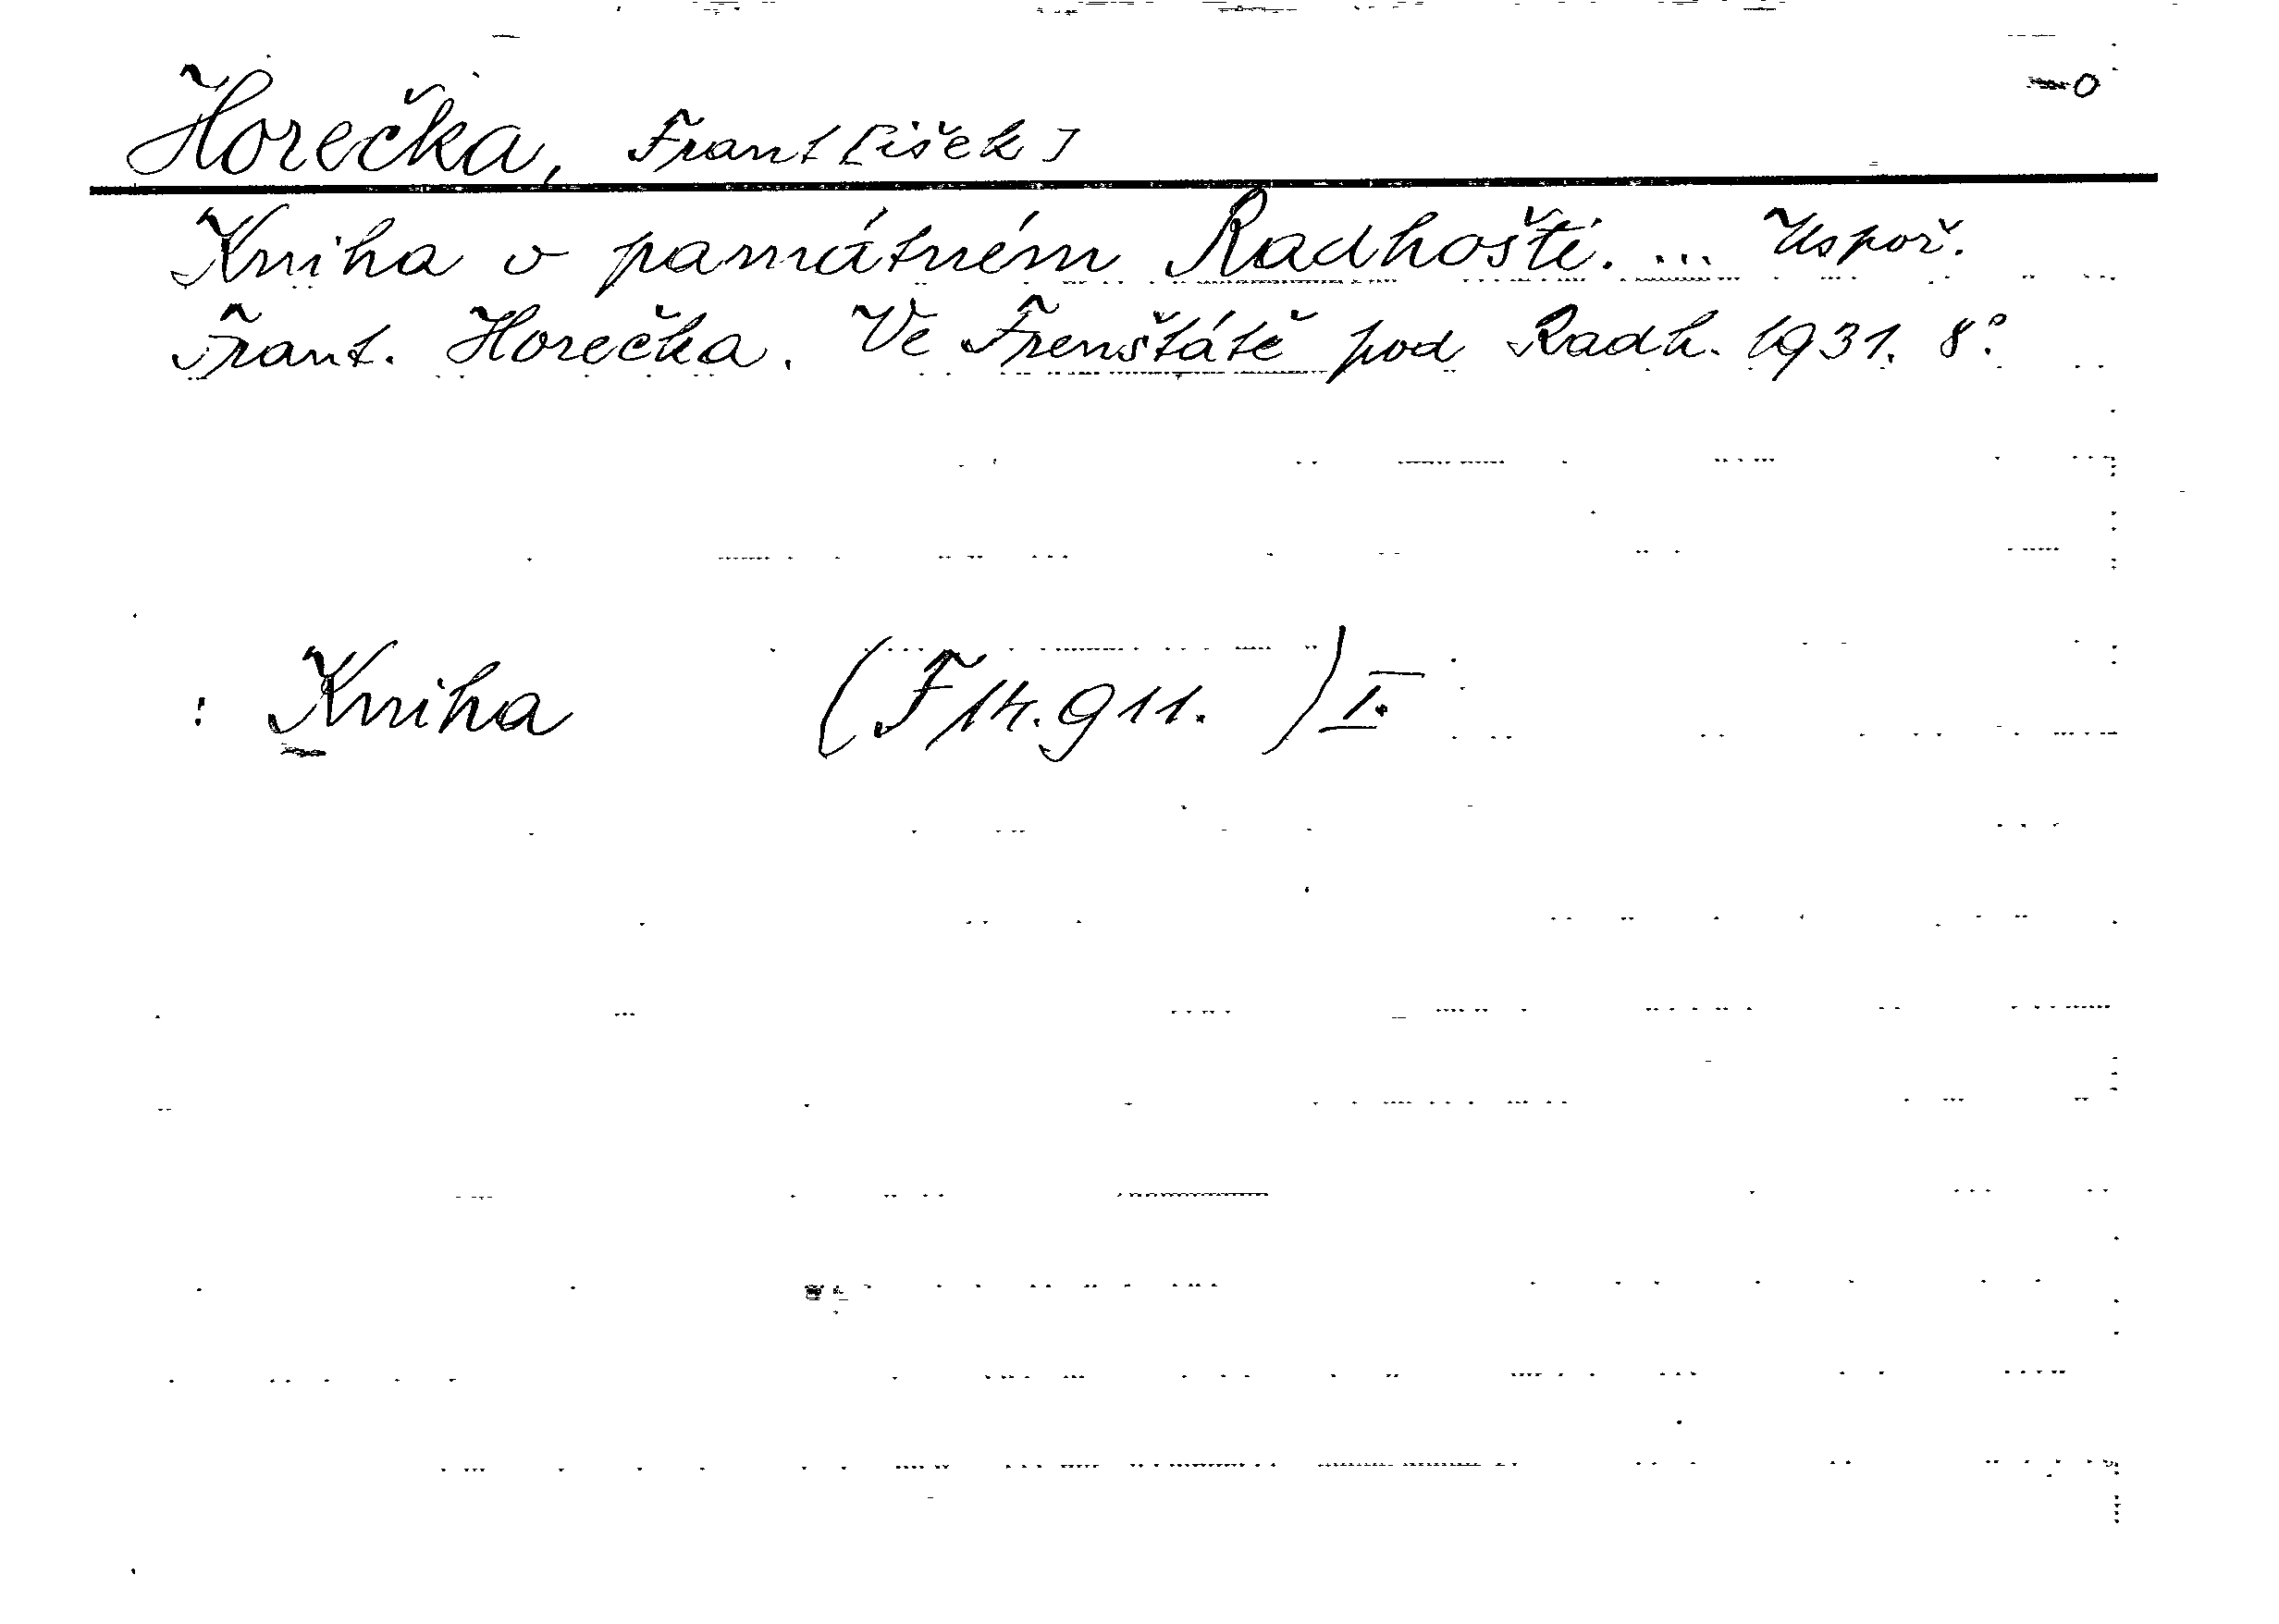 Horečka, Frant[išek]
Kniha o památném Radhošti. ... Uspoř.
Frant. Horečka. Ve Frenštátě pod Radh. 1931. 8°.
: Kniha (F 14.911. ) I.